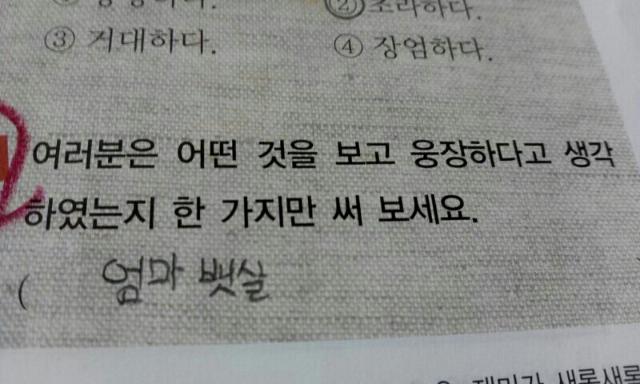 ② 초라하다.
③ 거대하다.
④ 장엄하다.
여러분은 어떤 것을 보고 웅장하다고 생각
하였는지 한 가지만 써 보세요.
( 엄마 뱃살